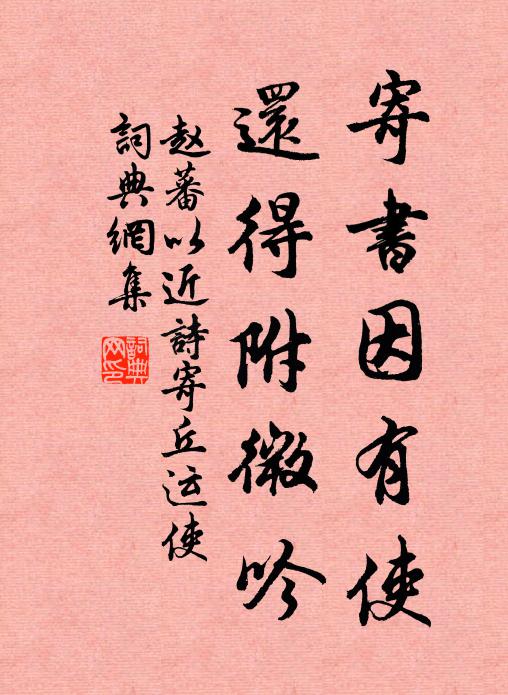 寄書因有使
還得附微吟
赵蕃以近詩寄丘运使
詞典網集
詞典網印